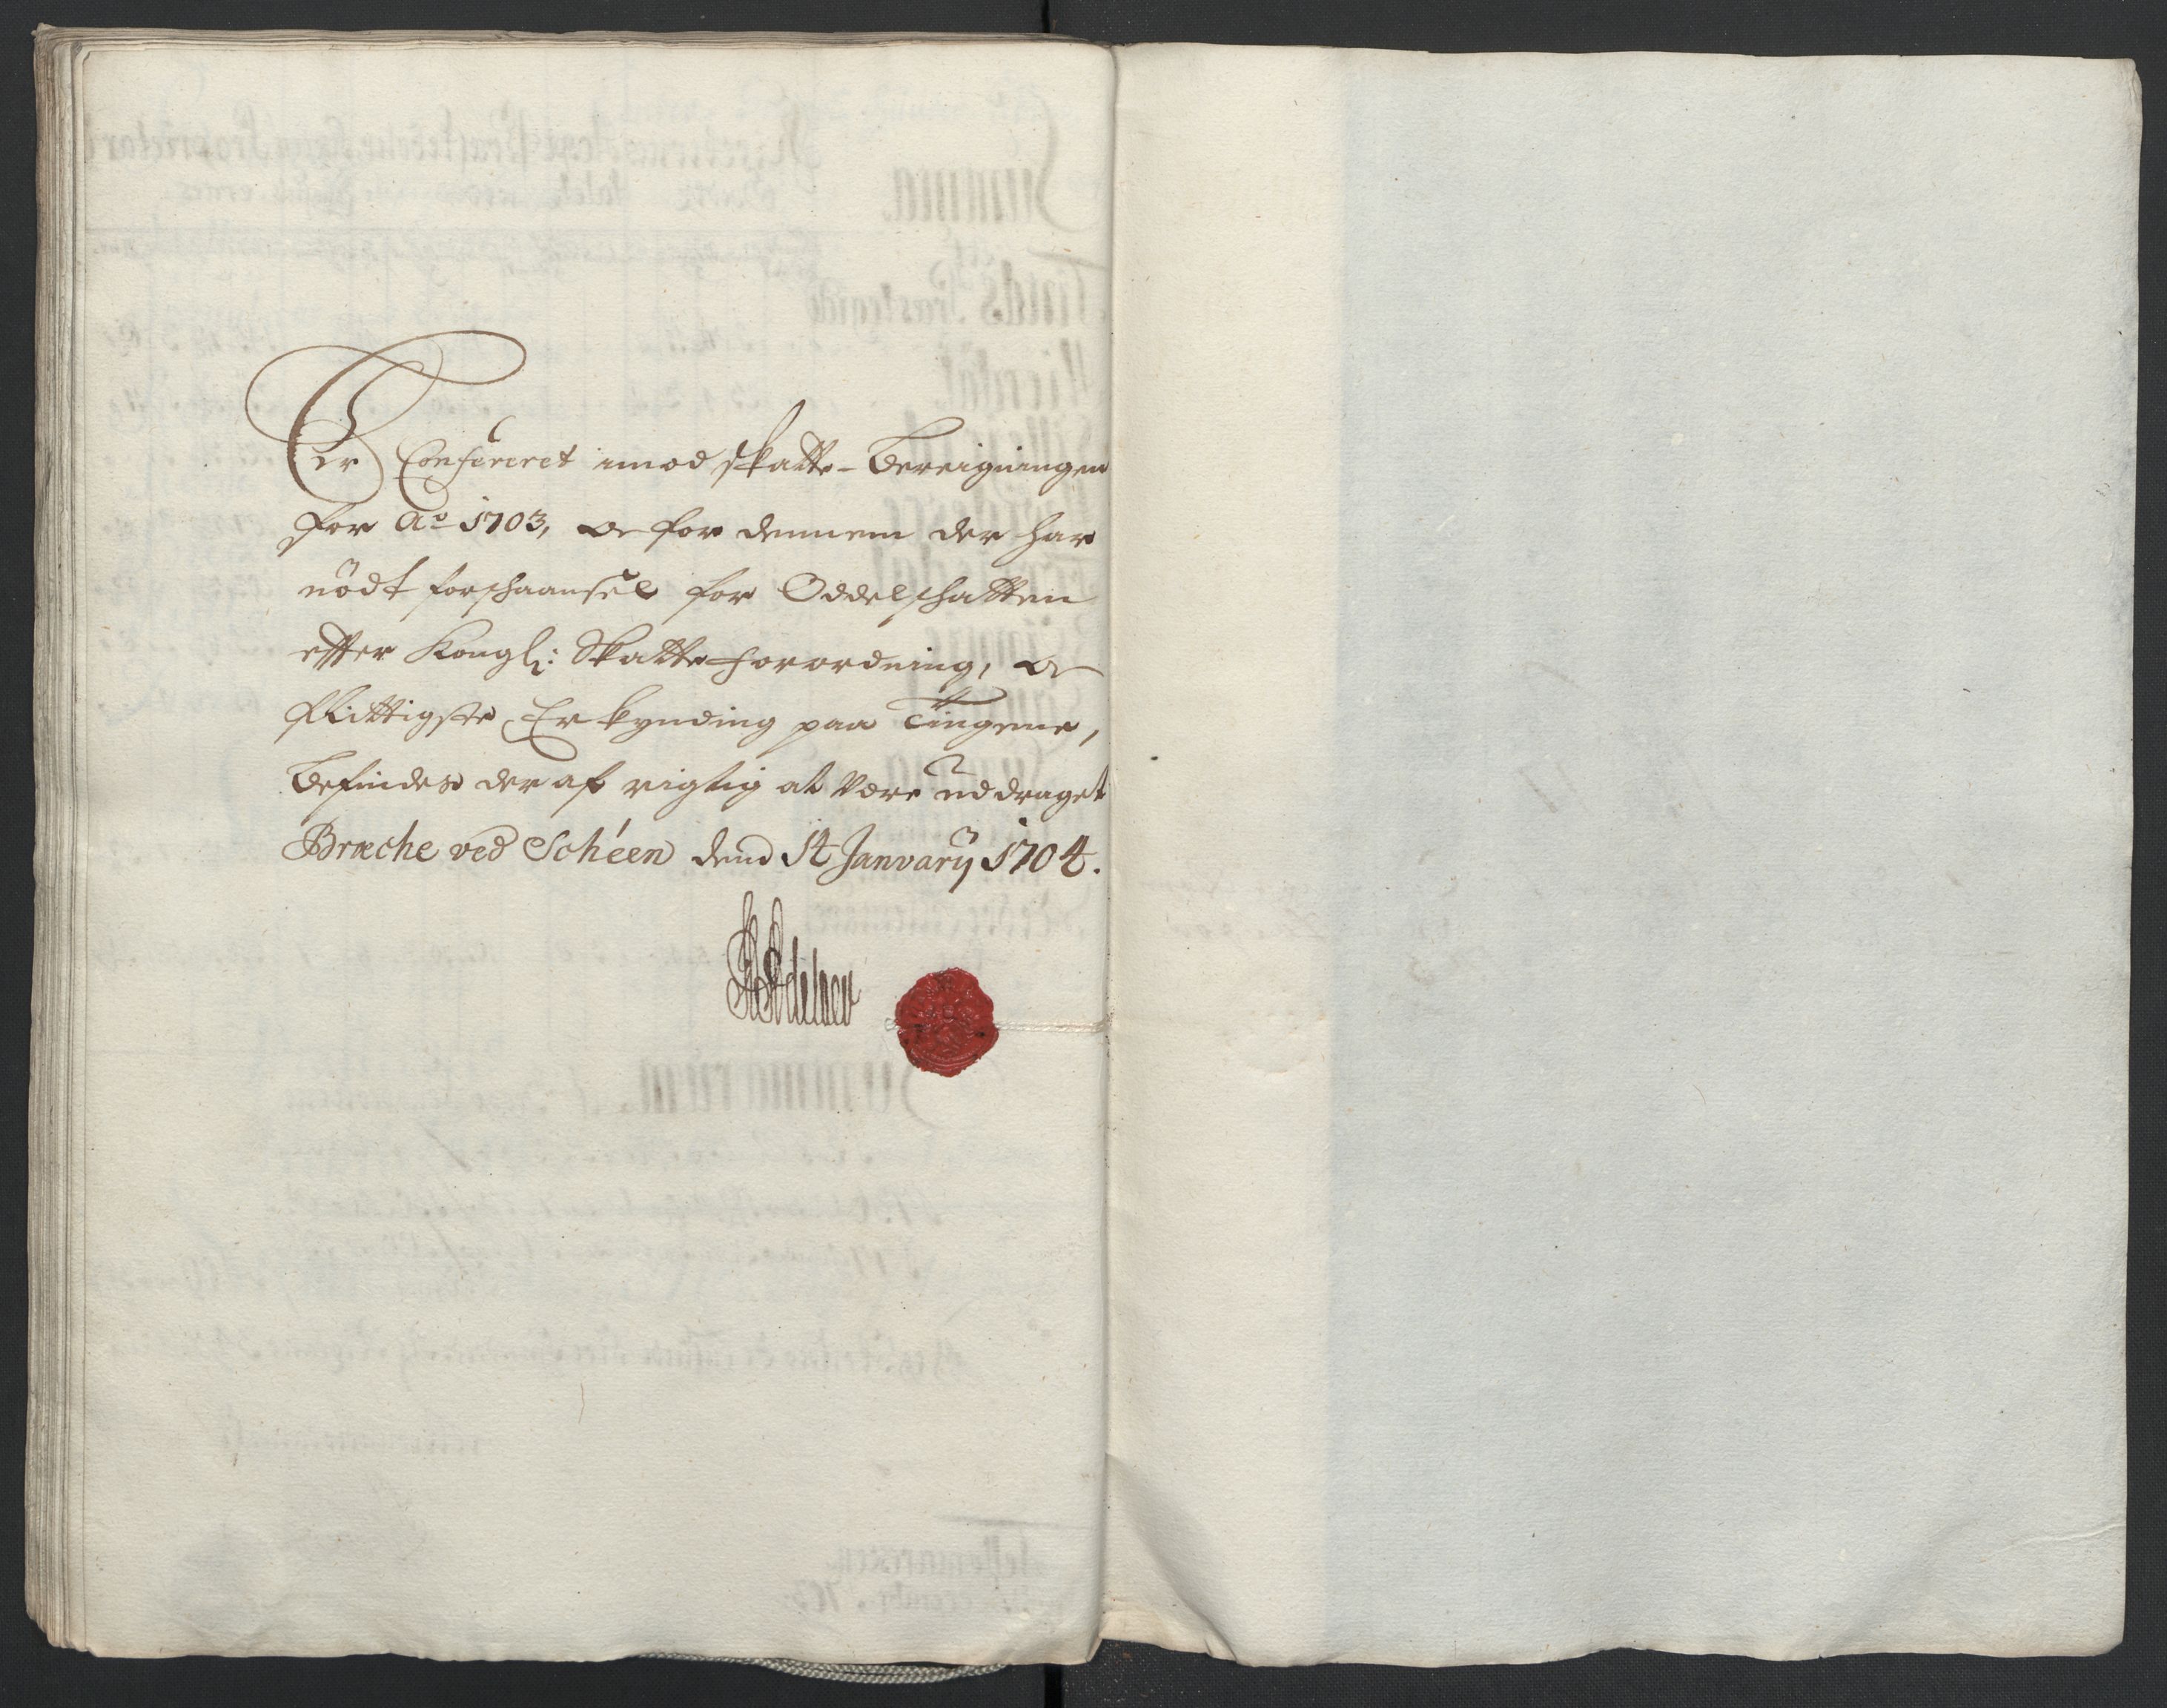 Er Confereret imod skatte-Bereigningen
for Ao 1703, oc for dennem der har
nödt forschaansel for Oddelschatten
effter Kongl: Skatte forordning, oc
flittigste Erkynding paa Tingene,
befindes der af rigtig at være uddraget
Bræche ved Schéen dend 14 January 1704.